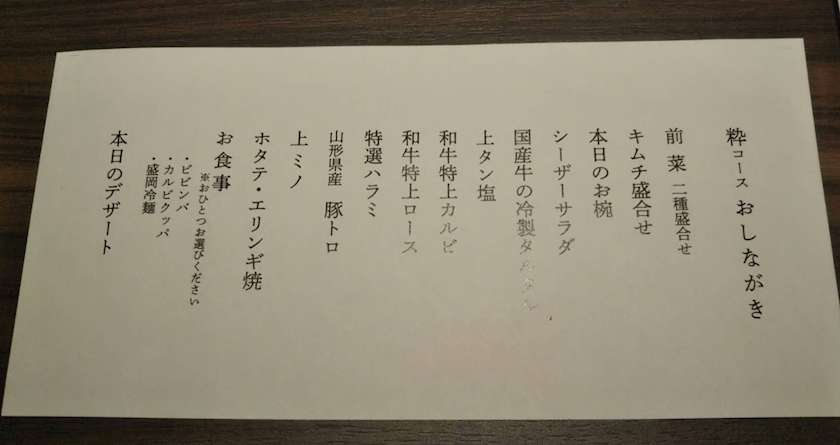 粋コース おしながき
前菜 二種盛合せ
キムチ盛合せ
本日のお椀
シーザーサラダ
国産牛の冷製タルタル
上タン塩
和牛特上カルビ
和牛特上ロース
特選ハラミ
山形県産 豚トロ
上ミノ
ホタテ・エリンギ焼
お食事
※おひとつお選びください
・ビビンバ
・カルビクッパ
・盛岡冷麺
本日のデザート